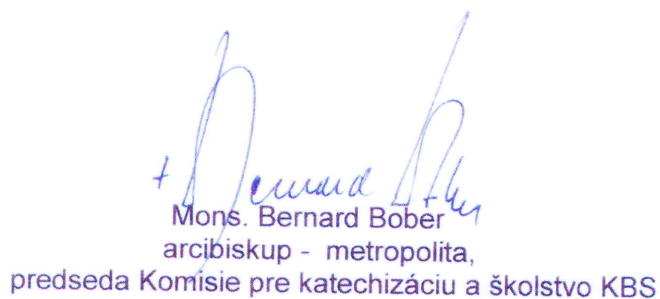 + Bernard Bober
Mons. Bernard Bober
arcibiskup - metropolita,
predseda Komisie pre katechizáciu a školstvo KBS